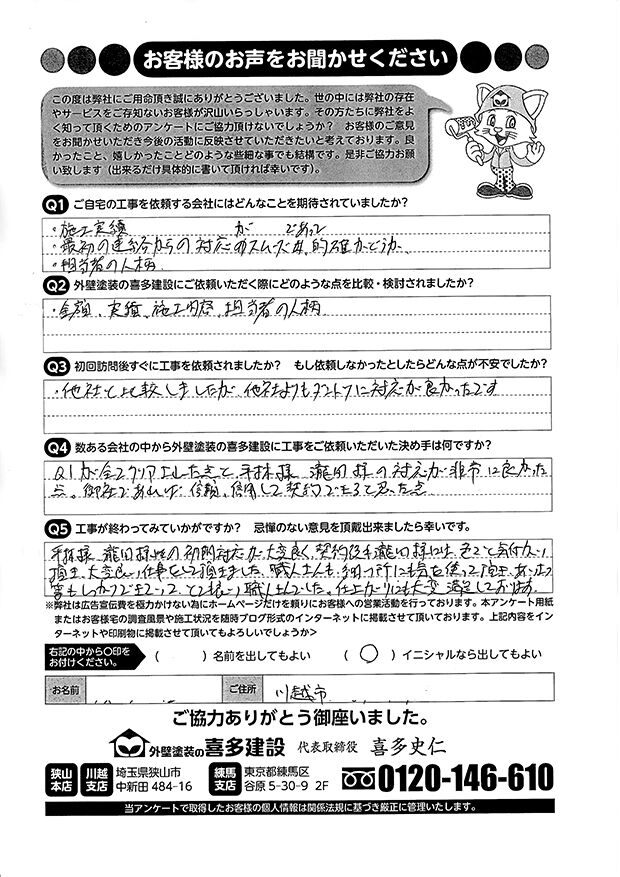 お客様のお声をお聞かせください
この度は弊社にご用命頂き誠にありがとうございました。世の中には弊社の存在
やサービスをご存知ないお客様が沢山いらっしゃいます。その方たちに弊社をよ
く知って頂くためのアンケートにご協力頂けないでしょうか？ お客様のご意見
をお聞かせいただき今後の活動に反映させていただきたいと考えております。良
かったこと、嬉しかったことどのような些細な事でも結構です。是非ご協力お願
い致します（出来るだけ具体的に書いて頂ければ幸いです）。
Q1 ご自宅の工事を依頼する会社にはどんなことを期待されていましたか？
・施工実績 が であって
・最初の連絡からの対応のスムーズさ、的確かどうか
・担当者の人柄
Q2 外壁塗装の喜多建設にご依頼いただく際にどのような点を比較・検討されましたか？
・金額、実績、施工内容、担当者の人柄
Q3 初回訪問後すぐに工事を依頼されましたか？ もし依頼しなかったとしたらどんな点が不安でしたか？
・他社と比較しましたが、他社よりもダントツに対応が良かったです
Q4 数ある会社の中から外壁塗装の喜多建設に工事をご依頼いただいた決め手は何ですか？
Q1が全てクリアできした点と、 様 瀧田様の対応が非常に良かった
点。御社であれば信頼、信用して契約できると思った点
Q5 工事が終わってみていかがですか？ 忌憚のない意見を頂戴出来ましたら幸いです。
様、瀧田様 の初期対応が大変良く、契約後も瀧田様には、色々と気付かい
頂き、大変良い仕事をして頂きました。職人さんも、細い所にも気を使って頂き、あいさつ
等もしっかりできていて、とても良い職人さんでした。仕上がりにも大変満足しております。
※弊社は広告宣伝費を極力かけない為にホームページだけを頼りにお客様への営業活動を行っております。本アンケート用紙
またはお客様宅の調査風景や施工状況を随時ブログ形式のインターネットに掲載させて頂いております。上記内容をイン
ターネットや印刷物に掲載させて頂いてもよろしいでしょうか＞
右記の中から〇印を
お付けください。
（ ）名前を出してもよい （ 〇 ）イニシャルなら出してもよい
お名前 ご住所 川越市
ご協力ありがとう御座いました。
外壁塗装の喜多建設 代表取締役 喜多史仁
狭山本店 川越支店 埼玉県狭山市中新田 484-16 練馬支店 東京都練馬区谷原 5-30-9 2F 0120-146-610
当アンケートで取得したお客様の個人情報は関係法規に基づき厳正に管理いたします。